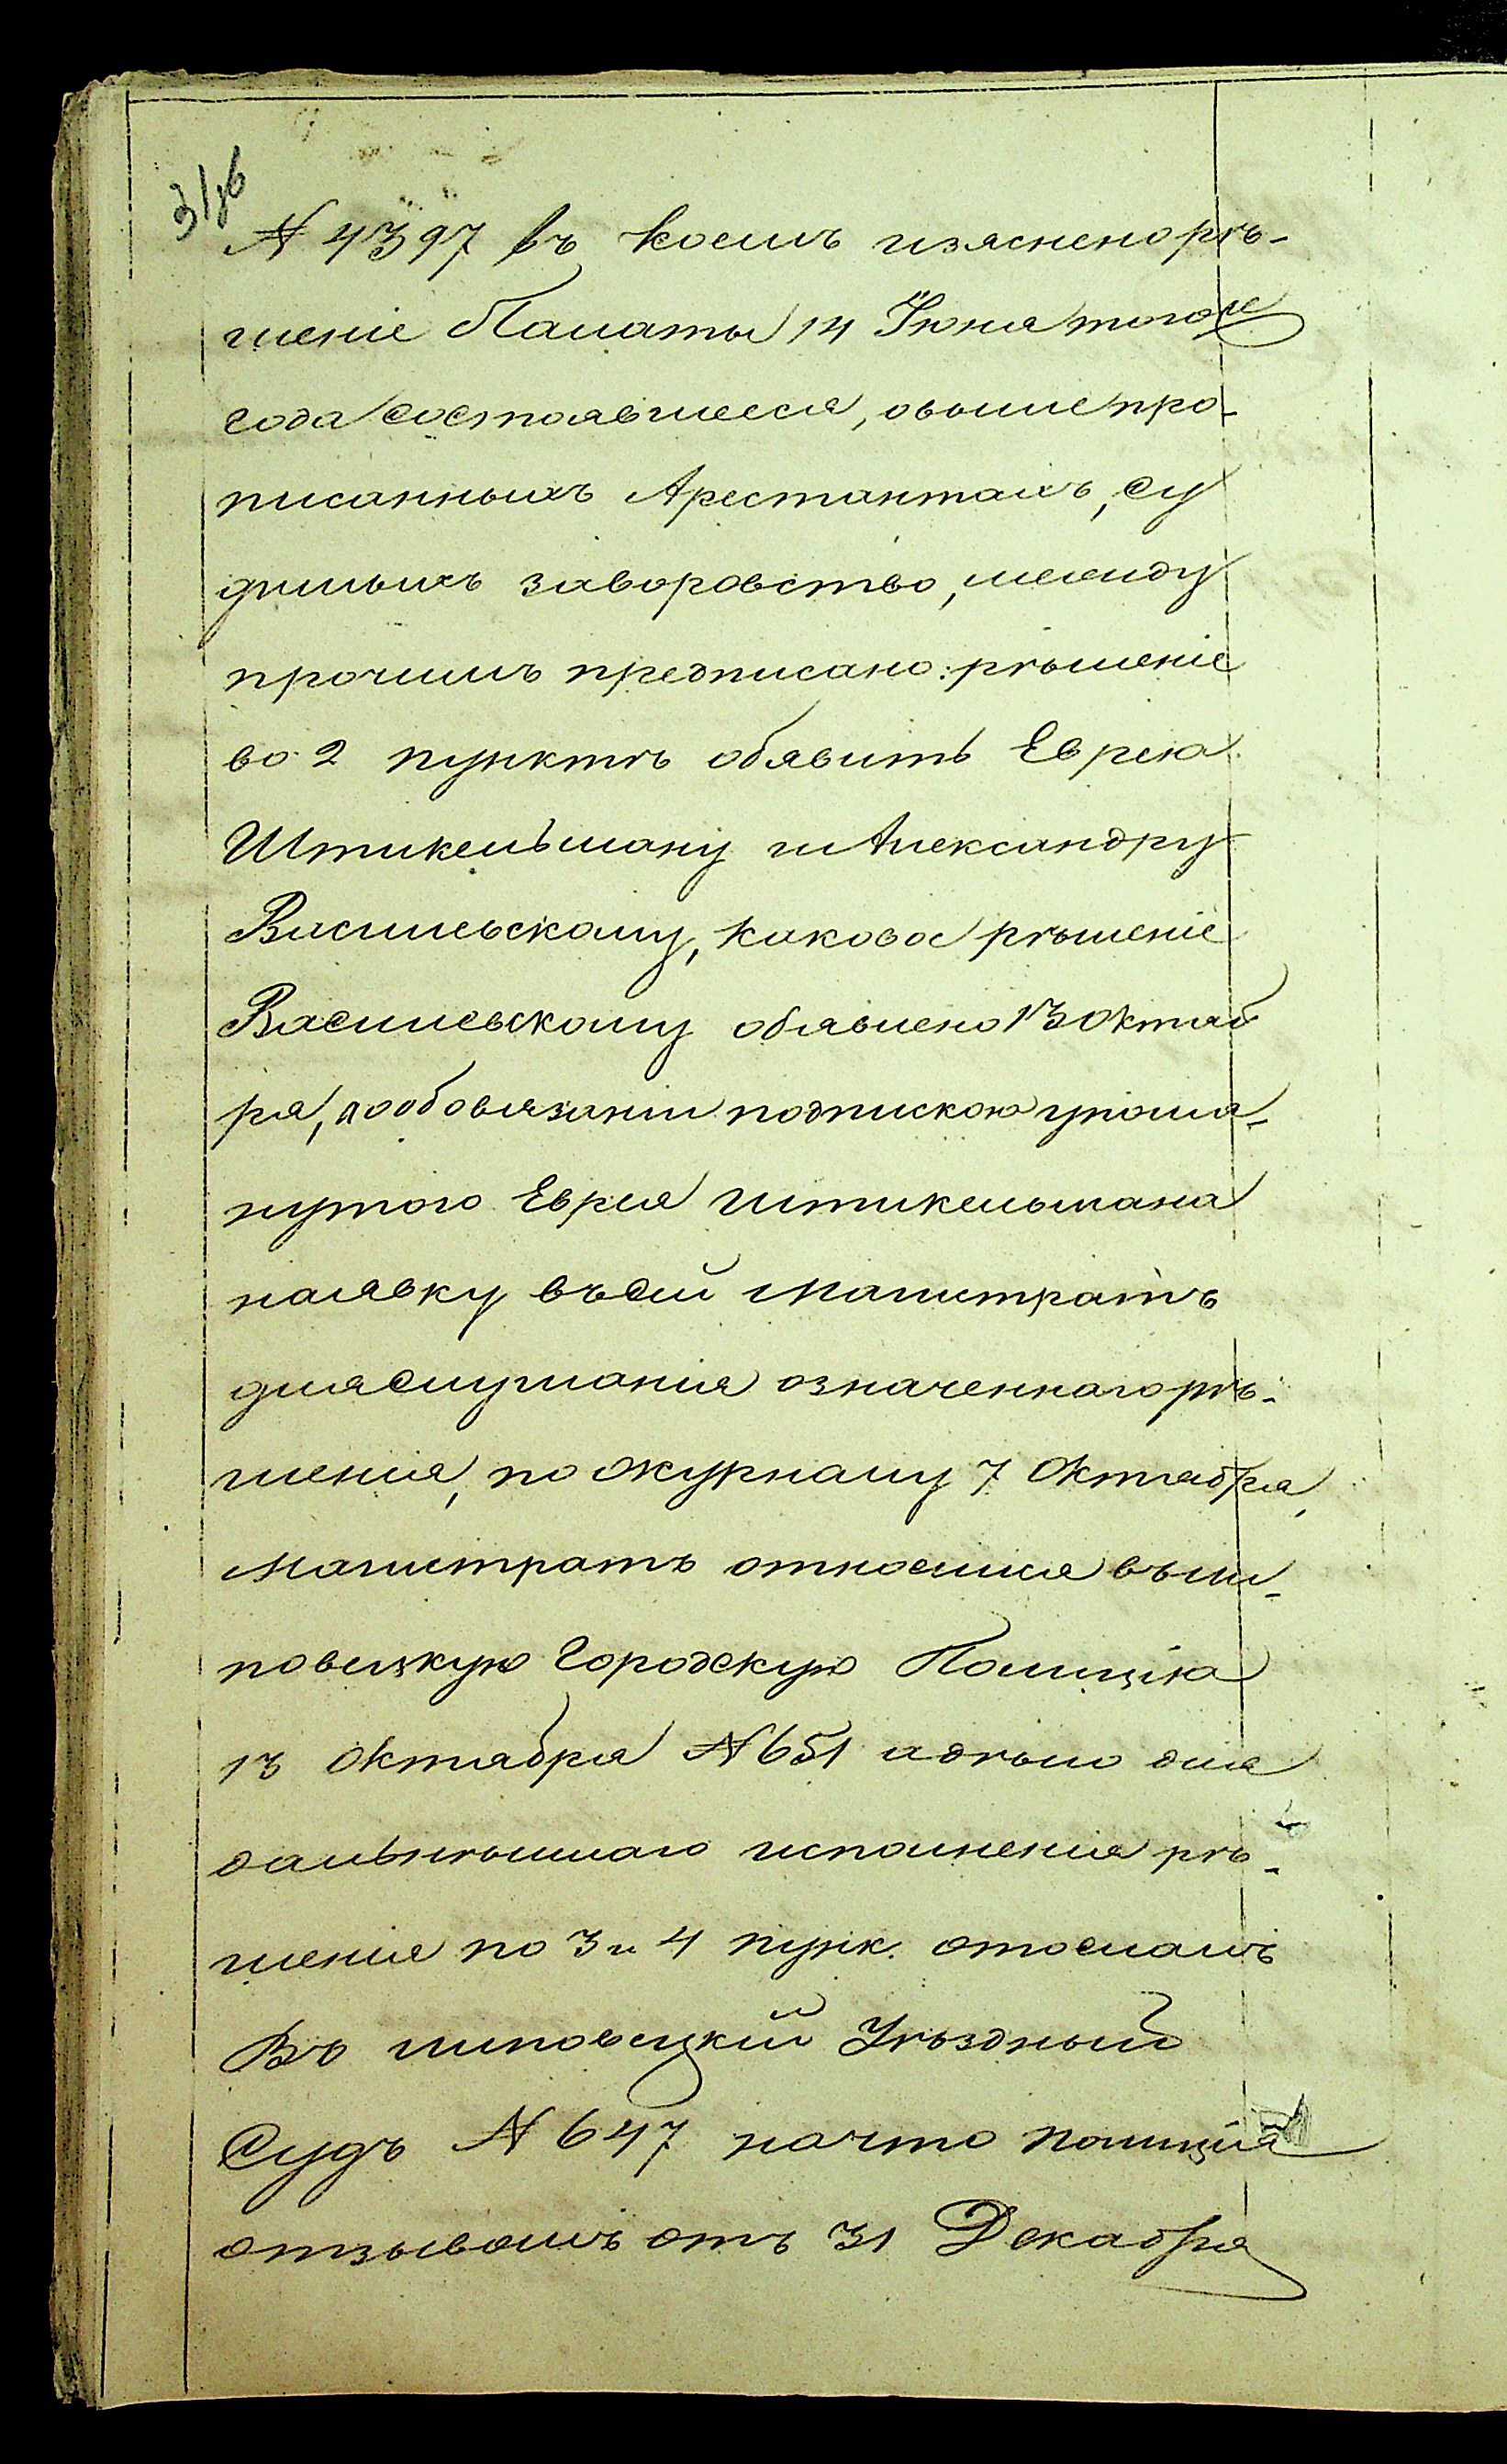 № 4397 въ коемъ изяснено рѣ-
шеніе Палаты 14 Іюня тогоже
года состоявшееся, овышепро-
писанныхъ Арестантахъ, су
димыхъ заворовство, между
прочимъ предписано: рѣшеніе
во 2 пунктѣ обявить Еврею
Штикельману и Александру
Василевскому, каковое рѣшеніе
Василевскому обявлено 13 Октяб
ря, пообовязаніи подпискою упомя-
нутого Еврея Штикельмана
наявку въсей Магистратъ
дляслушанія означенного рѣ-
шенія, по журналу 7 Октября,
Магистратъ относился въли-
повецкую Городскую Полицію
13 Октября № 651 адѣло для
дальнѣйшаго исполненія рѣ-
шенія по 3 и 4 пунк. отослалъ
Въ липовецкій Уѣздный
Судъ № 647 начто полиція
отзывомъ отъ 31 Декабря